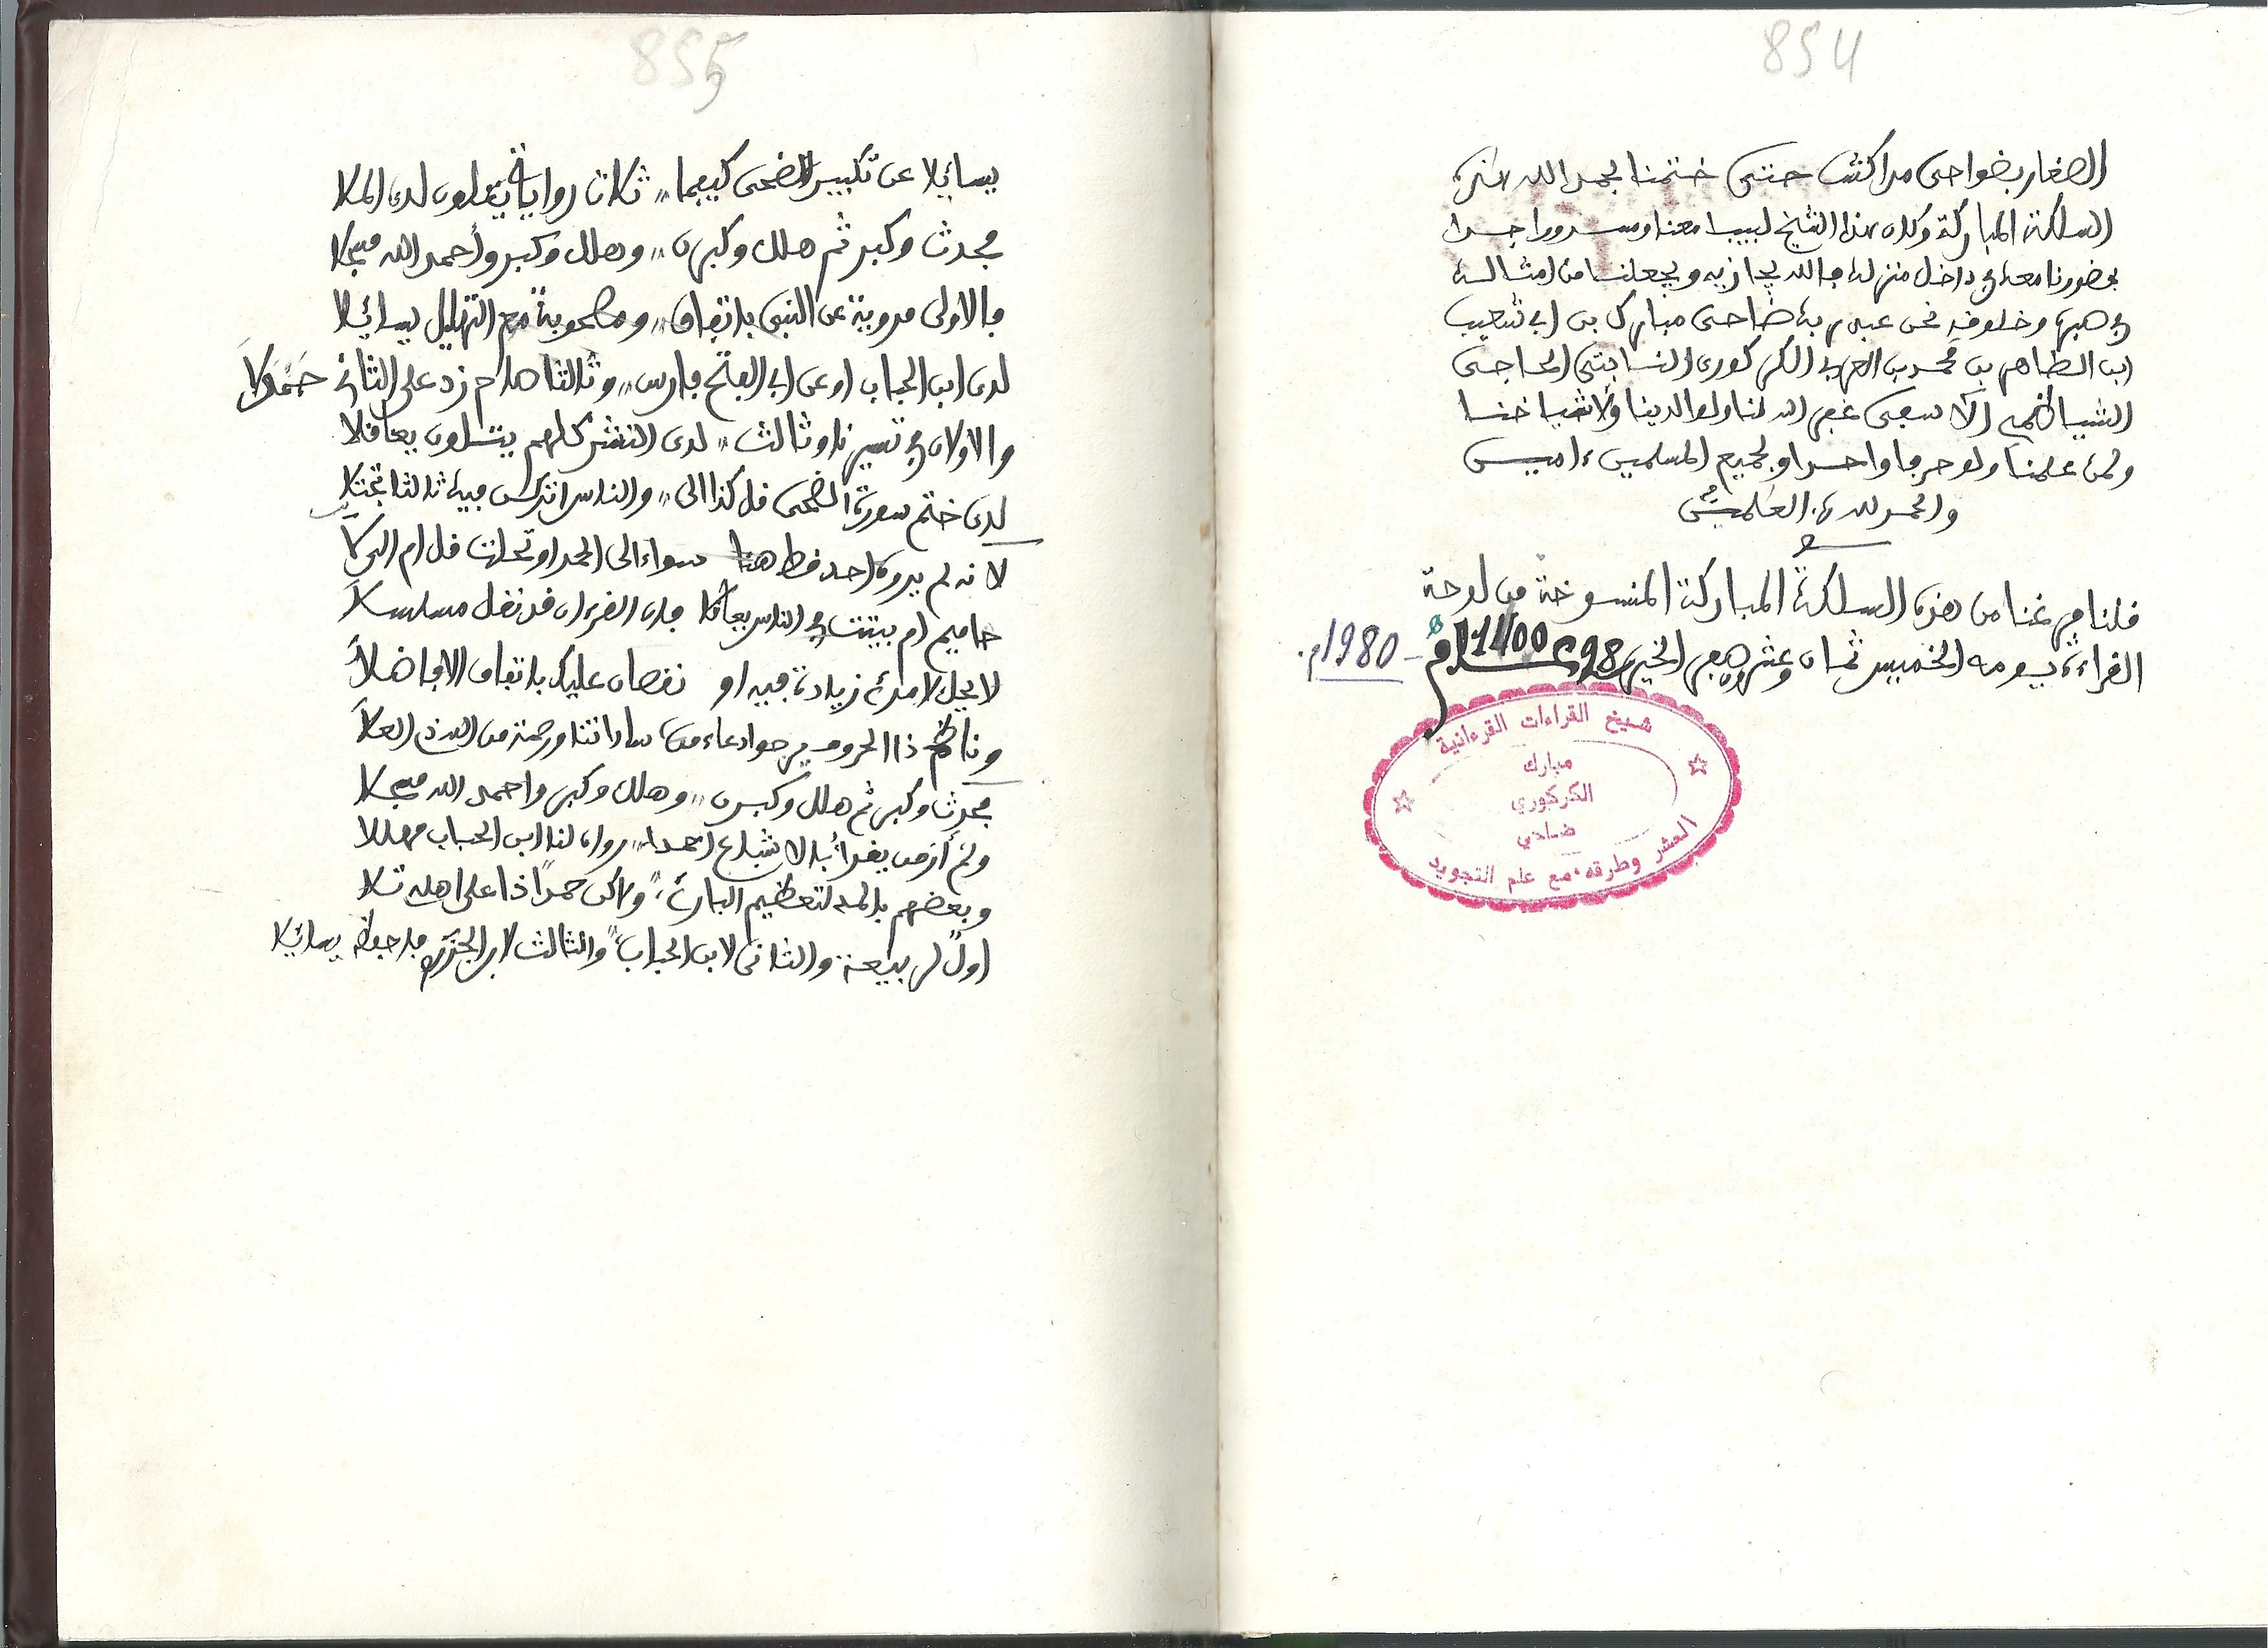 854
الصغار بضواحى مراكش حتى ختمنا بحمد الله هذه
السلكة المباركة وكان هذا الشيخ لبيبا معنا ومسرورا جدا
بحضورنا معه في داخل منزله فالله يجازيه ويجعلنا من امثاله
نحن عبيد ربه ضاحى مبارك بن ابى شعيب
ابن الطاهر بن محمد بن العربي الكركورى الحاجى
الشياظمي الاسفى غفر الله لنا ولوالدينا ولأشياخنا
ولمن علمنا ولو حرفا واحدا ولجميع المسلمين ءامين
والحمد لله رب العلمين
فلنا فرغنا من هذه السلكة المباركة المنسوخة من لوحة
القراءة يومه الخميس ثمان وعشر 28 1400 - 1980م.
شيخ القراءات القرءانية
مبارك
الكركوري
ضاحي
العشر وطرقه، مع علم التجويد
855
يسائلا عن تكبير الضحى كيفما ,, ثلاث روايات لدى الملا
فحدث وكبر ثم هلل وكبرن ,, وهلل وكبر وأحمد الله مسجلا
فالاولى مروية عن النبى باتفاق ,, ومصحوبة مع التهليل يسائلا
لدى ابن الحباب او عن ابى الفتح فارس ,, وثالثا زد على الثانى
والاولان في تيسيرنا وثالث ,, لدى النشر كلهم يتسلون
لدى ختم سورة الضحى قل كذا الى ,, والناس اتركن فيه ثالثا
لانه لم يروه احد قط هنا سواء الى الحمد او قل ام الى
حاميم ام بينت في الناس فان القرءان قد نقل مسلسلا
لا يحل لامرئ زيادة فيه او نقصان عليك باتفاق الافاضلا
وناظم ذا الحروف يرجوا دعاء من ساداتنا ورحمة من الله ذى العلا
فحدث وكبر ثم هلل وكبرن ,, وهلل وكبر واحمد الله مسجلا
ولم أر من يقرأ بالاشباع احدا ,, رواه لنا ابن الحباب مهللا
وبعضهم بالمد لتعظيم البارئ ,, ولاكن حمدا ذا على اهله تلا
اول لربيعة والثانى لابن الحباب ,, والثالث لابن الجزرى يسائلا